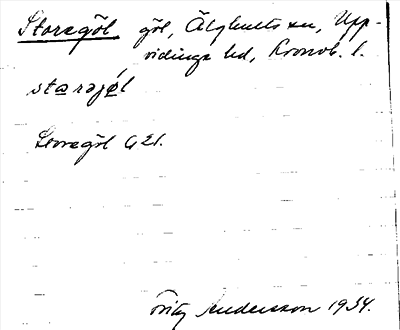 Storegöl göl, Älghults sn, Upp-
vidinge hd, Kronob. l.
størəjøl
Storegöl GEI.
Fritz Andersson 1934.